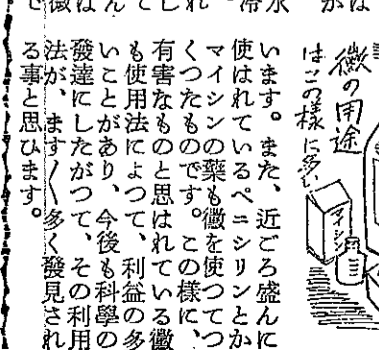 黴の用途
はこの様に多い
マイシン
います。また、近ごろ盛んに
使はれているペニシリンとか
マイシンの藥も黴を使つてつ
くつたものです。この樣に、
有害なものと思はれている黴
も使用法によつて、利益の多
いことがあり、今後も科學の
發達にしたがつて、その利用
法が、ます〳〵多く發見され
る事と思ひます。